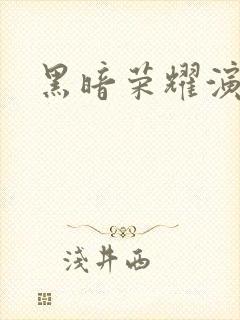 黑暗荣耀演
浅井西